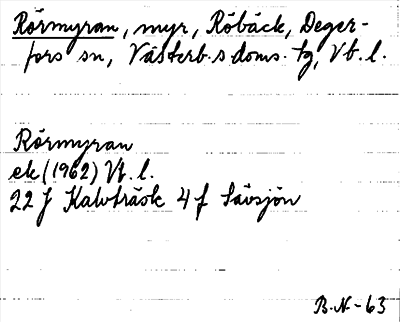 Rörmyran, myr, Röbäck, Deger-
fors sn, Västerb. s doms. tg, Vb. l.
Rörmyran
ek (1962) Vb. l.
22 J Kalvträsk 4 f Sävsjön
B.N-63